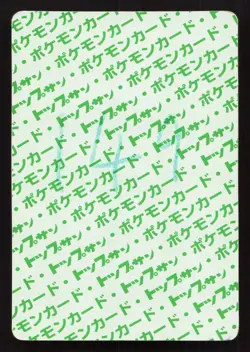 ポケモンカード・トップサン・
ポケモンカード・トップサン・ポケモンカード
トップサン・ポケモンカード・トップサン
ポケモンカード・トップサン・ポケモンカード
トップサン・ポケモンカード・トップサン
ポケモンカード・トップサン・ポケモンカード
トップサン・ポケモンカード・トップサン
ポケモンカード・トップサン・ポケモンカード
トップサン・ポケモンカード・トップサン
ポケモンカード・トップサン・ポケモンカード
トップサン・ポケモンカード